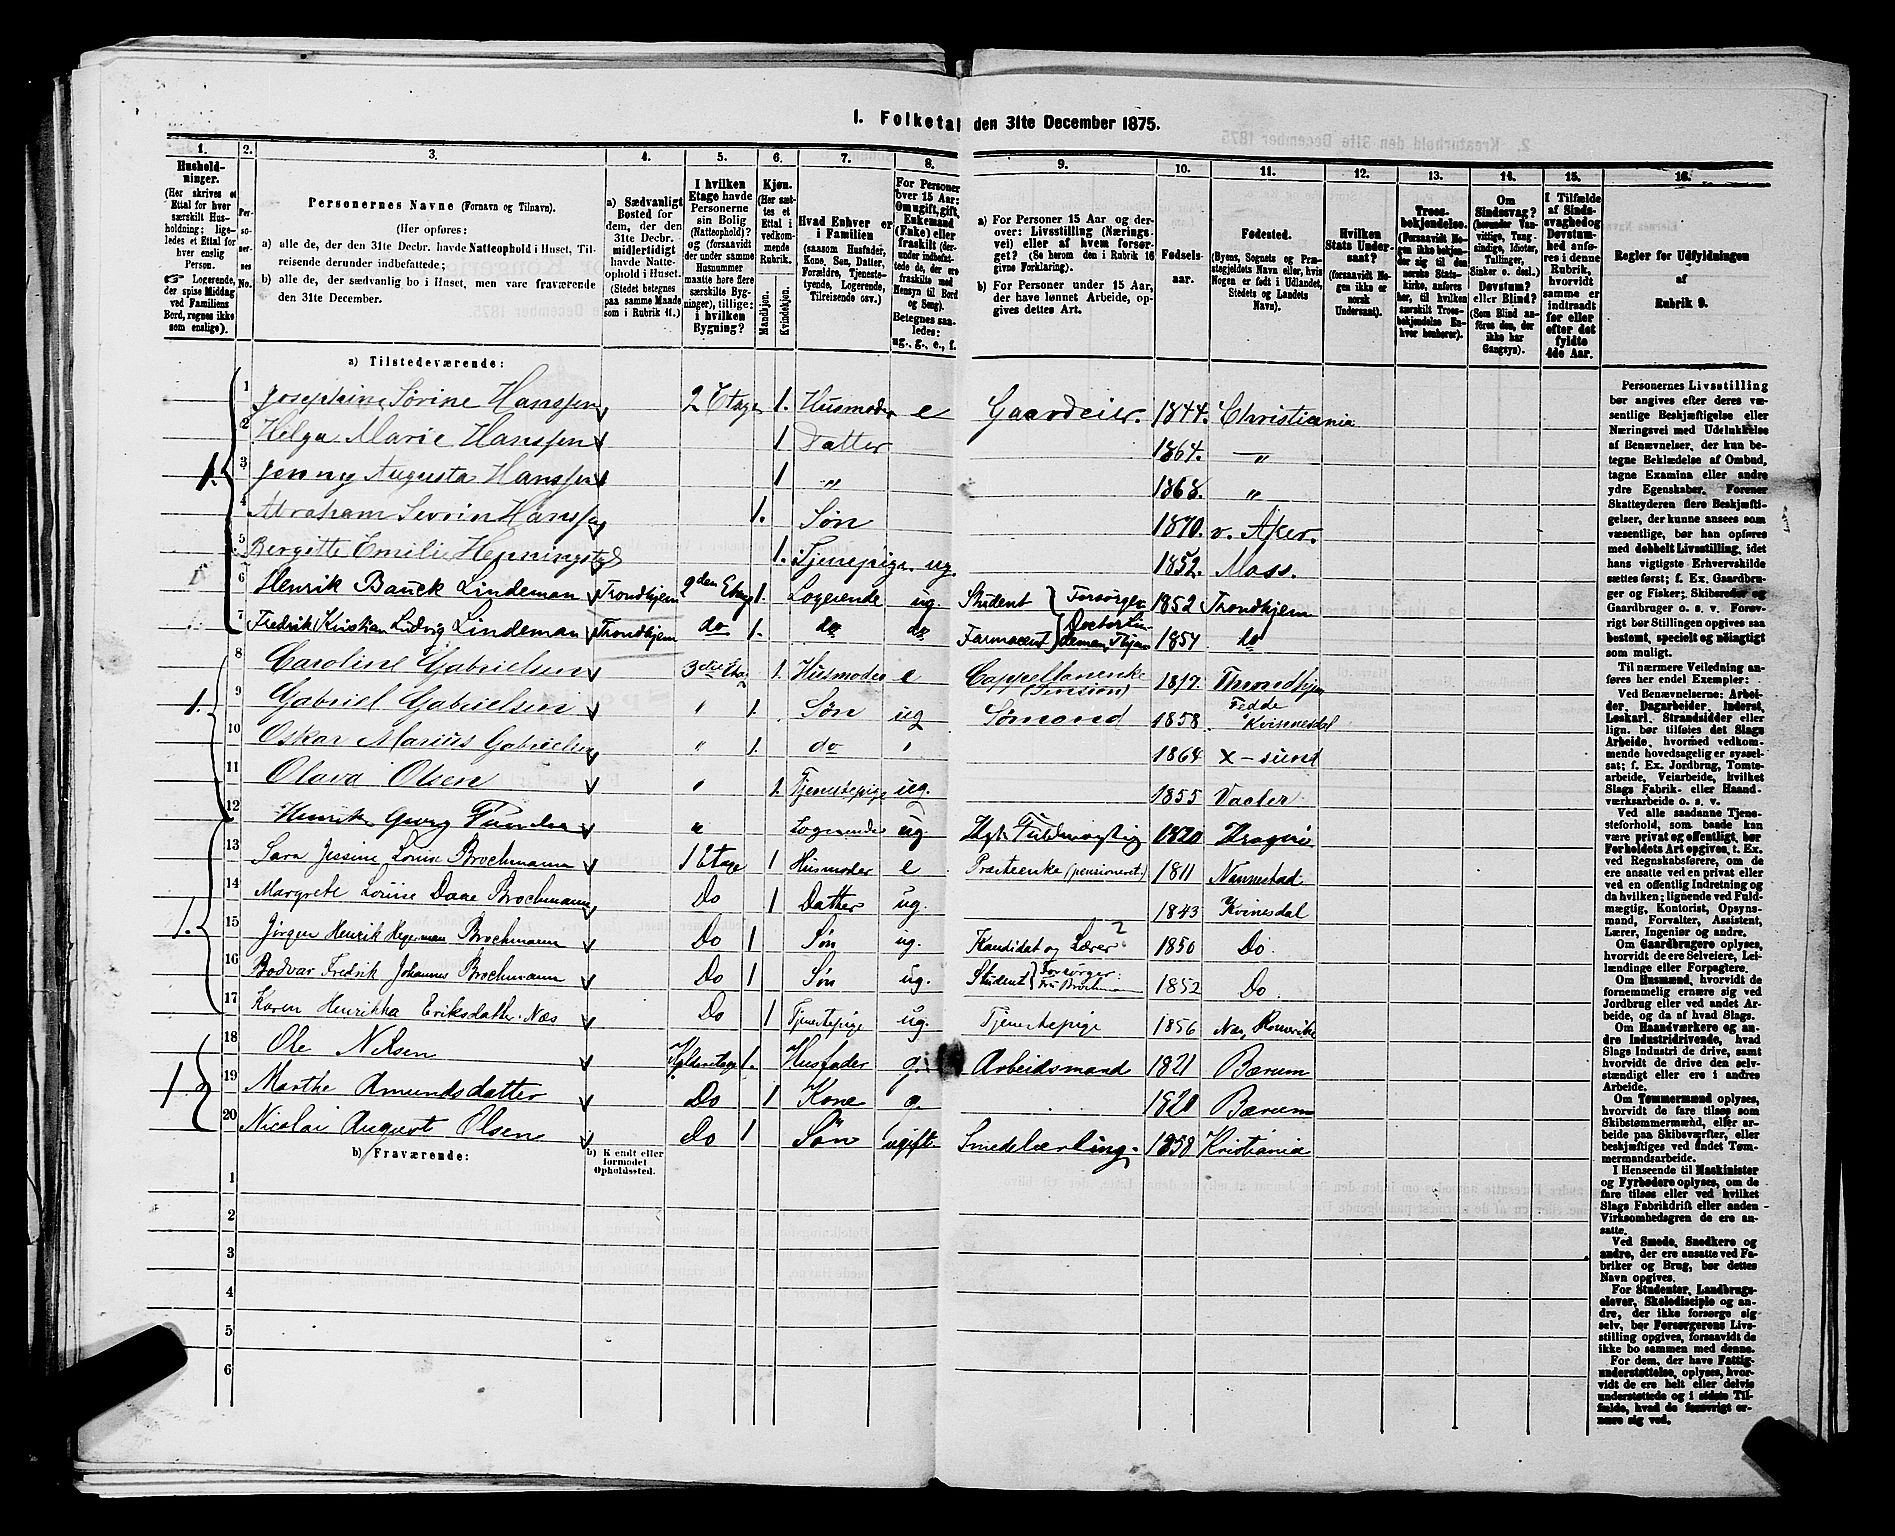 1. Folketal den 31te December 1875.
1. 2. 3. 4. 5. 6. 7. 8. 9. 10. 11. 12. 13. 14. 15. 16.
Hushold-
ninger.
(Her skrives et
Ettal for hver
særskilt Hus-
holdning; lige-
ledes et Ettal for
hver enslig
Person.
Logerende,
der spise Middag
ved Familiens
Bord, regnes ikke
som enslige).
Per-
so-
ner-
nes
No.
Personernes Navne (Fornavn og Tilnavn).
(Her opføres:
a) alle de, der den 31te Decbr. havde Natteophold i Huset, Til-
reisende derunder indbefattede;
b) alle de, der sædvanlig bo i Huset, men vare fraværende
den 31te December.
a) Sædvanligt
Bosted for
dem, der den
31te Decbr.
midlertidigt
havde Natte
ophold i Huset.
(Stedet betegnes
paa samme Maade
som i Rubrik 11.)
I hvilken
Etage havde
Personerne
sin Bolig
(Natteophold)?
og (forsaavidt
der under samme
Husnummer
maatte høre flere
særskilte Byg-
ninger), tillige:
i hvilken
Bygning?
Kjøn.
(Her sæt-
tes et
Ettal i
vedkom-
mende
Rubrik.
Mandkjøn.
Kvindekjøn.
Hvad Enhver er
i Familien
(saasom Husfader,
Kone, Søn, Datter,
Forældre, Tjeneste-
tyende, Logerende,
Tilreisende osv.)
For Personer
over 15 Aar:
Om ugift, gift,
Enkemand
(Enke) eller
fraskilt (der-
under indbefat-
tede de, der ere
fraskilte med
Hensyn til Bord
og Seng).
Betegnes saa-
ledes:
ug., g., e., f.
a) For Personer 15 Aar og der-
over: Livsstilling (Nærings-
vei) eller af hvem forsør-
get? (Se herom den i Rubrik 16
givne Forklaring).
b) For Personer under 15 Aar,
der have lønnet Arbeide, op-
gives dettes Art.
Fødsels-
aar.
Fødested.
(Byens, Sognets og Præ-
stegjeldets Navn eller, hvis
Nogen er født i Udlandet,
Stedets og Landets
Navn).
Hvilken
Stats Under-
saat?
(forsaavidt No-
gen ikke er
norsk
Undersaat).
Troes-
bekjendelse.
(Forsaavidt No-
gen ikke bekjen-
der sig til den
norske Stats-
kirke, anføres
her, til hvilken
særskilt Troes-
bekjendelse En-
hver henhører).
Om
Sindssvag?
(herunder Van-
vittige, Tung-
sindige, Idioter,
Tullinger,
Sinker o. desl.)
Døvstum?
eller Blind?
(Som Blind an-
føres den, der
ikke har
Gangsyn).
I Tilfælde
af Sinds-
svaghed og
Døvstum-
hed anfø-
res i denne
Rubrik,
hvorvidt
samme er
indtraadt
før eller
efter det
fyldte
4de Aar.
Regler for Udfyldningen
af
Rubrik 9.
a) Tilstedeværende:
1 Josephine Sørine Hanssen 2 Etage 1. Husmoder e Gaardeier. 1844. Christiania
2 Helga Marie Hanssen 1 Datter 1864. — „
1. 3 Jenny Augusta Hanssen 1 „ 1868. „
4 Abraham Sevrin Hanssen 1. Søn 1870. v. Aker.
5 Bergitte Emilie Henningstad 1. Tjenepige. ug. 1852. Moss.
6 Henrik Bauck Lindeman Trondhjem 2den Etage 1. Logerende ug. Student Forsørger 1852 Trondhjem
7 Fredrik Kristian Ludvig Lindeman Trondhjem do 1. do do Farmaceut Doctor Lindeman, Thjem 1854 do
8 Caroline Gabrielsen 3die Etage 1. Husmoder e Cappellanenke (Pension) 1817. Throndhjem
1. 9 Gabriel Gabrielsen 1. Søn ug Sømand 1858. Fedde Kvinnesdal
10 Oskar Marius Gabrielsen „ 1. do 1864 X-sund
11 Olava Olsen „ 1. Tjenestepige ug. 1855 Vaaler
12 Henrik Georg „ Logerende ug. Fuldmægtig 1820 Kragerø
13 Sara Jessine Louise Brochmann 1 Etage 1 Husmoder e Præsteenke (pensioneret.) 1811 Nannestad
14 Margrete Louise Daae Brochmann Do 1 Datter ug. 1843 Kvinesdal
1. 15 Jørgen Henrik Hegerman Brochmann Do 1 Søn ug. Kandidat og Lærer ? 1850 Do.
16 Bodvar Fredrik Johannes Brochmann Do 1 Søn ug. Student Forsørger: Fru Broch- 1852 Do.
17 Karen Henrikka Eriksdatter Næs Do 1 Tjenestepige ug. Tjenestepige 1856 Næs, Romerike
18 Ole Nilsen Kjelderetage 1. Husfader g. Arbeidsmand 1821 Bærum
1 19 Marthe Amundsdatter Do 1 Kone g. 1820 Bærum
20 Nicolai August Olsen do 1 Søn ugift Smedelærling. 1858 Kristiania
b) Fraværende:
b) Kendt eller
formodet
Opholdssted.
1
2
3
4
5
6
Personernes Livsstilling
bør angives efter deres væ-
sentlige Beskjæftigelse eller
Næringsvei med Udelukkelse
af Benævnelser, der kun be-
tegne Beklædelse af Ombud,
tagne Examina eller andre
ydre Egenskaber. Forener
Skatteyderen flere Beskjæfti-
gelser, der kunne ansees som
væsentlige, bør han opføres
med dobbelt Livsstilling, idet
hans vigtigste Erhvervskilde
sættes først; f. Ex. Gaardbru-
ger og Fisker; Skibsreder og
Gaardbruger o. s. v. Forøv-
rigt bør Stillingen opgives saa
bestemt, specielt og nøiagtigt
som muligt.
Til nærmere Veiledning an-
føres her endel Exempler:
Ved Benævnelserne: Arbei-
der, Dagarbeider, Inderst,
Løskarl, Strandsidder eller
lign. bør tilføies det Slags
Arbeide, hvormed vedkom-
mende hovedsagelig er syssel-
sat; f. Ex. Jordbrug, Tomte-
arbeide, Veiarbeide, hvilket
Slags Fabrik- eller Haand-
værksarbeide o. s. v.
Ved alle saadanne Tjene-
steforhold, som baade kan
være privat og offentligt, bør
Forholdets Art opgives, t. Ex.
ved Regnskabsførere, om de
ere ansatte ved en privat eller
ved en offentlig Indretning og
da hvilken; lignende ved Fuld-
mægtig, Kontorist, Opsyns-
mand, Forvalter, Assistent,
Lærer, Ingeniør og andre.
Om Gaardbrugere oplyses,
hvorvidt de ere Selveiere, Lei-
lændinge eller Forpagtere.
Om Husmænd, hvorvidt de
fornemmelig ernære sig ved
Jordbrug eller ved andet Ar-
beide, og da af hvad Slags.
Om Haandværkere og an-
dre Industridrivende, hvad
Slags Industri de drive, samt
hvorvidt de drive den selv-
stændigt eller ere i andres
Arbeide.
Om Tømmermænd oplyses,
hvorvidt de fare tilsøs som
Skibstømmermænd, eller ar-
beide paa Skibsværfter, eller
beskjæftiges ved andet Tøm-
mermandsarbeide.
I Henseende til Maskinister
og Fyrbødere oplyses, om de
fare tilsøs eller ved hvilket
Slags Fabrikdrift eller anden
Virksomhedsgren de ere an-
satte.
Ved Smede, Snedkere og
andre, der ere ansatte ved Fa-
briker og Brug, bør dettes
Navn opgives.
For Studenter, Landbrugs-
elever, Skoledisciple og an-
dre, der ikke forsørge sig
selv, bør Forsørgerens Livs-
stilling opgives, forsaavidt de
ikke bo sammen med denne.
For dem, der have Fattig-
understøttelse, oplyses, hvor-
vidt de ere helt eller delvis
understøttede og i sidste Til-
fælde, hvad de forøvrigt er-
nære sig ved.